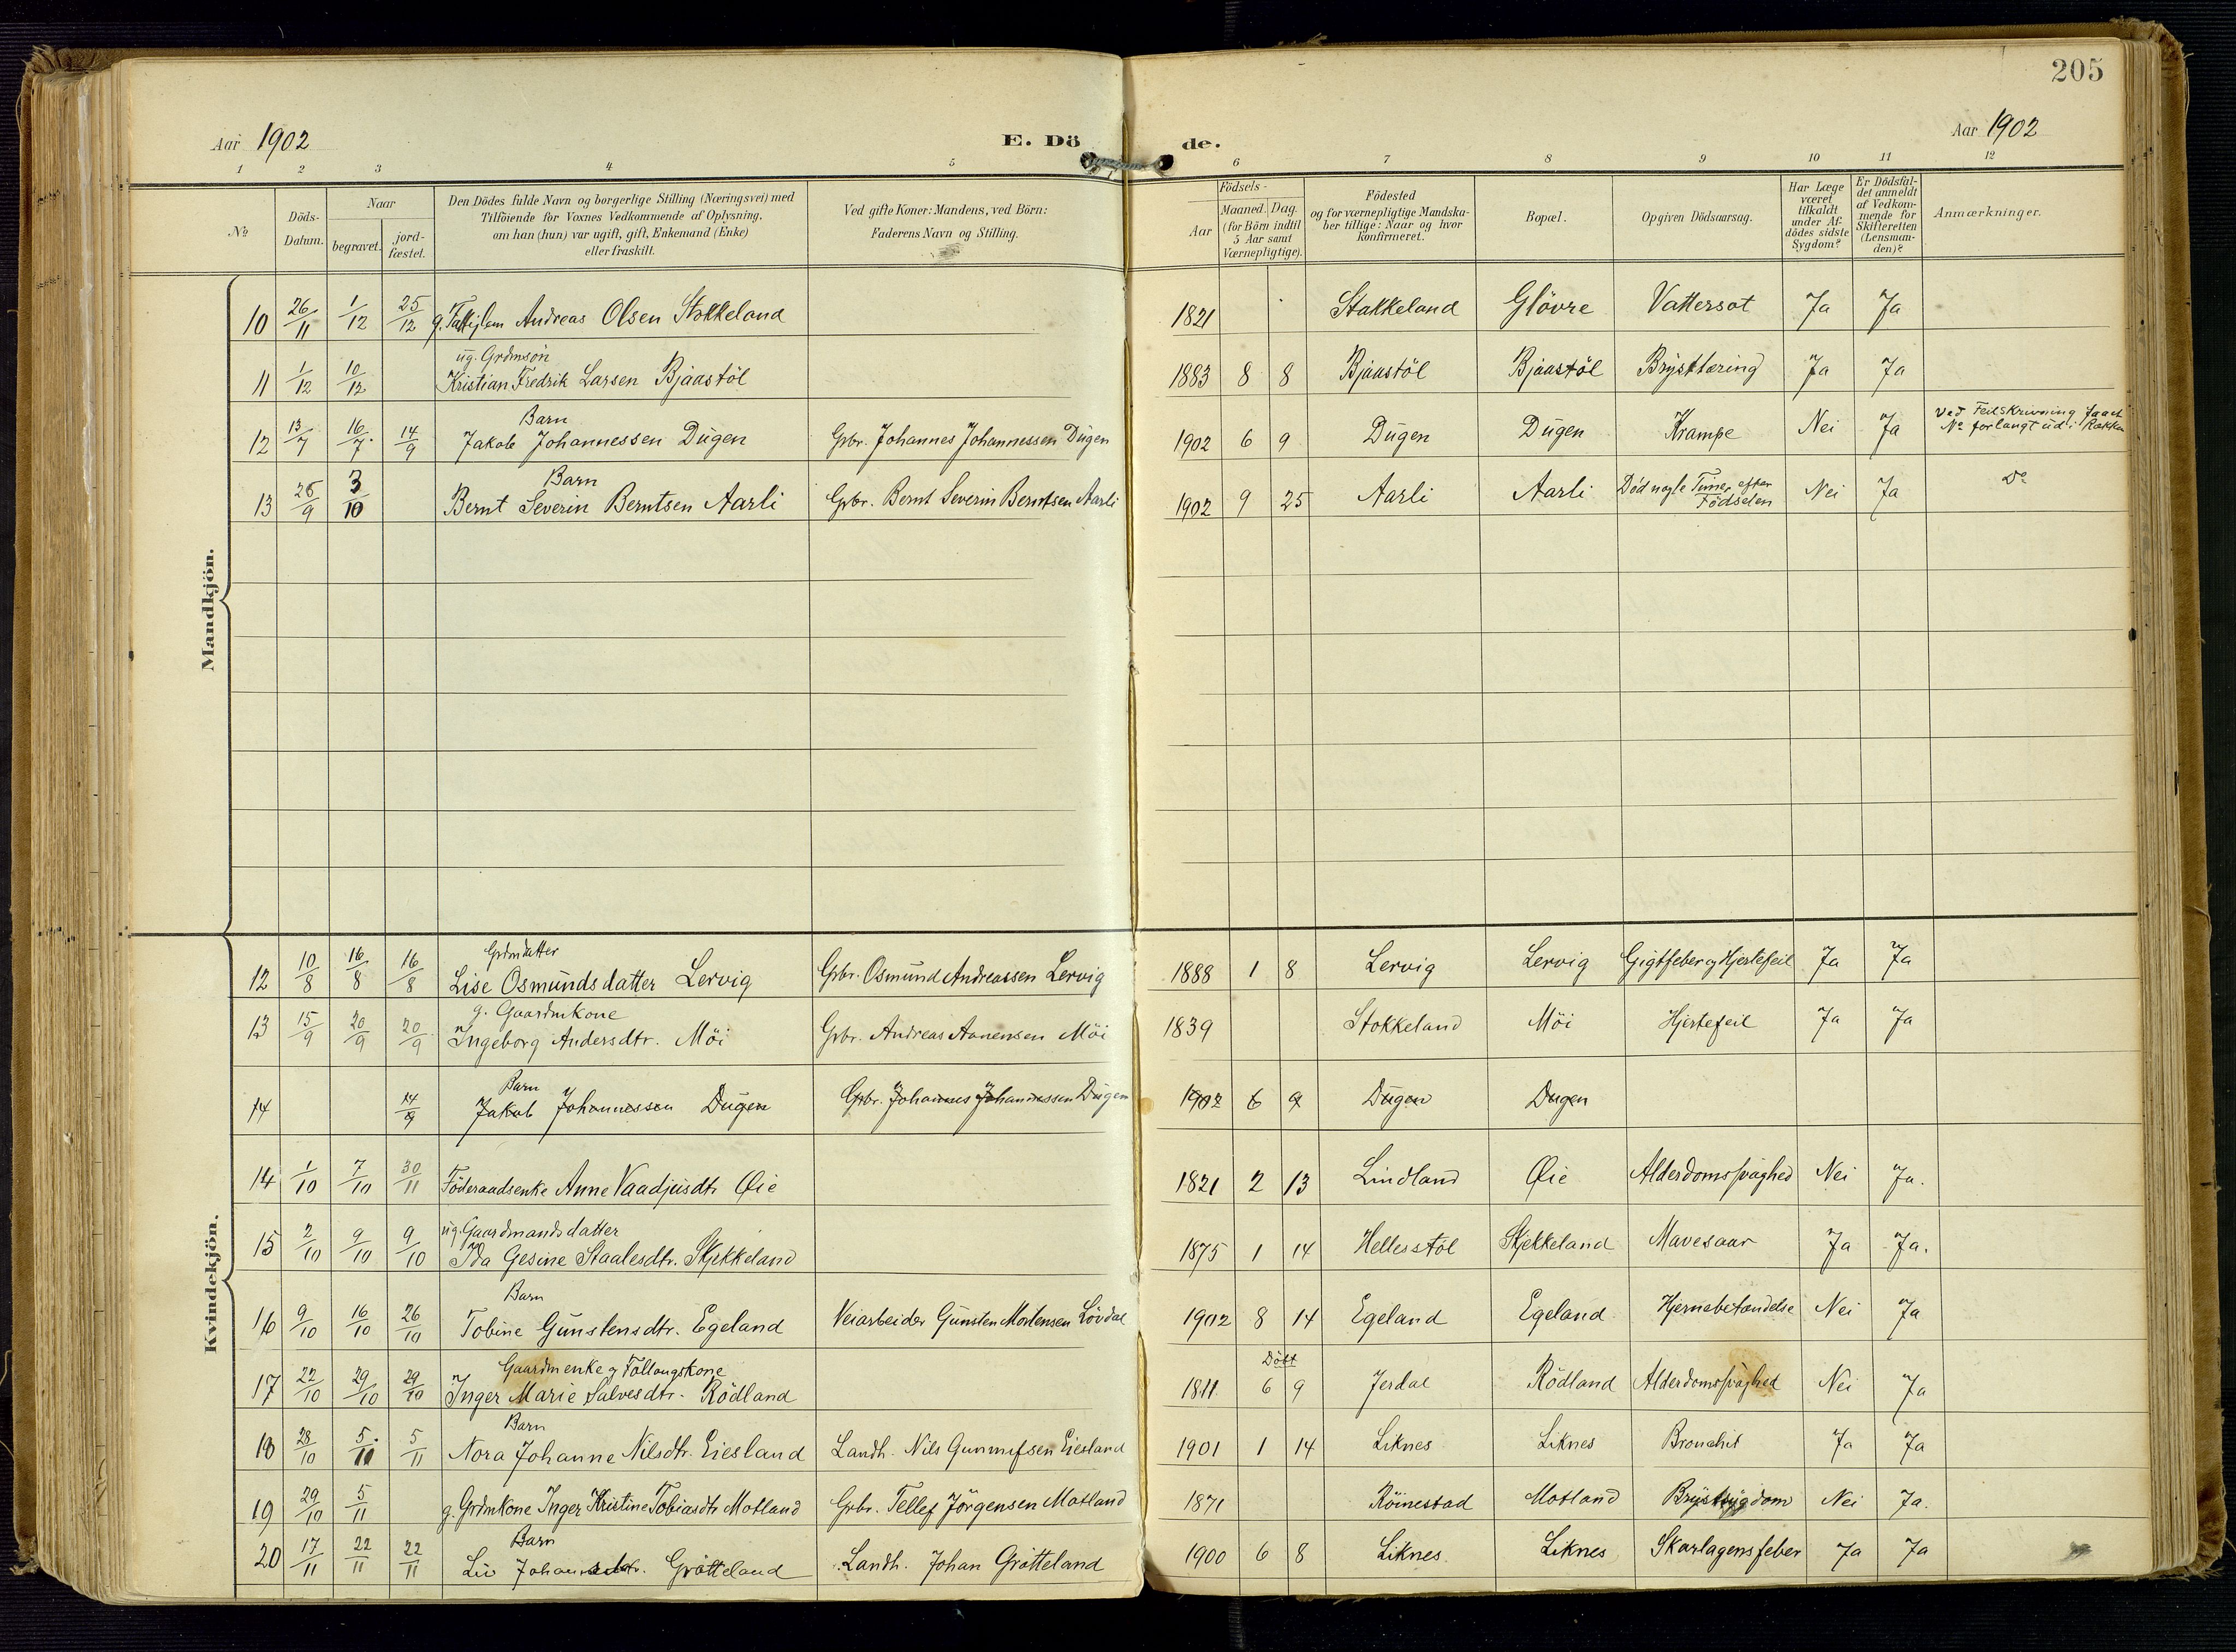 205
Aar 1902
E. Dö de.
Aar 1902
1 2 3 4 5 6 7 8 9 10 11 12
№
Döds-
Datum.
Naar
begravet.
jord-
fæstet.
Den Dödes fulde Navn og borgerlige Stilling (Næringsvei) med
Tilföiende for Voxnes Vedkommende af Oplysning,
om han (hun) var ugift, gift, Enkemand (Enke)
eller fraskilt.
Ved gifte Koner: Mandens, ved Börn:
Faderens Navn og Stilling.
Födsels-
Aar
Maaned. Dag.
(for Börn indtil
5 Aar samt
Værnepligtige).
Födested
og for værnepligtige Mandska-
ber tillige: Naar og hvor
konfirmeret.
Bopæl.
Opgiven Dödsaarsag.
Har Læge
været
tilkaldt
under Af-
dödes sidste
Sygdom?
Er Dödsfal-
det anmeldt
af Vedkom-
mende for
Skifteretten
(Lensman-
den)?
Anmærkninger.
Mandkjön.
10 26/11 1/12 25/12 g. Fattiglem Andreas Olsen Stokkeland 1821 Stakkeland Glövre Vattersot Ja Ja
ug. Grdmsön
11 1/12 10/12 Kristian Fredrik Larsen Bjaastöl 1883 8 8 Bjaastöl Bjaastöl Brysttæring Ja Ja
Barn
12 13/7 16/7 14/9 Jakob Johannessen Dugen Gbr. Johannes Johannessen Dugen 1902 6 9 Dugen Dugen Krampe Nei Ja Ved Feilskrivning
№ forlangt ud i Rækken
Barn
13 25/9 3/10 Bernt Severin Berntsen Aarli Gbr. Bernt Severin Berntsen Aarli 1902 9 25 Aarli Aarli Död nogle Timer efter
Födselen Nei Ja Do
Kvindekjön.
Grdmdatter
12 10/8 16/8 16/8 Lise Osmundsdatter Lervig Gbr. Osmund Andreassen Lervig 1888 1 8 Lervig Lervig Gigtfeber og Hjertefeil Ja Ja
g. Gaardmkone
13 15/9 20/9 20/9 Ingeborg Andersdtr. Möi Gbr. Andreas Aanensen Möi 1839 Stokkeland Möi Hjertefeil Ja Ja
Barn
14 14/9 Jakob Johannessen Dugen Gbr. Johannes Johannessen Dugen 1902 6 9 Dugen Dugen
14 1/10 7/10 30/11 Föderaadsenke Anne Vaadjusdtr Øie 1821 2 13 Lindland Øie Alderdomssvaghed Nei Ja.
ug. Gaardmandsdatter
15 2/10 9/10 9/10 Ida Gesine Staalesdtr. Skjekkeland 1875 1 14 Hellesstöl Skjekkeland Mavesaar Ja Ja.
Barn
16 9/10 16/10 26/10 Tobine Gunstensdtr. Egeland Veiarbeider Gunsten Mortensen Lövdal 1902 8 14 Egeland Egeland Hjernebetændelse Nei Ja
Gaardmenke og Follaugskone Döbt
17 22/10 29/10 29/10 Inger Marie Salvesdtr. Rödland 1811 6 9 Jerdal Rödland Alderdomssvaghed Nei Ja
Barn
18 28/10 5/11 5/11 Nora Johanne Nilsdtr. Eiesland Landh. Nils Gunnufsen Eiesland 1901 1 14 Liknes Liknes Bronchit Ja Ja
19 29/10 5/11 g. Grdmkone Inger Kristine Tobiasdtr Motland Gbr. Tellef Jörgensen Motland 1871 Röinestad Motland Brystsygdom Nei Ja.
Barn
20 17/11 22/11 22/11 Liv Johansdtr. Grötteland Landh. Johan Grötteland 1900 6 8 Liknes Liknes Skarlagensfeber Ja Ja